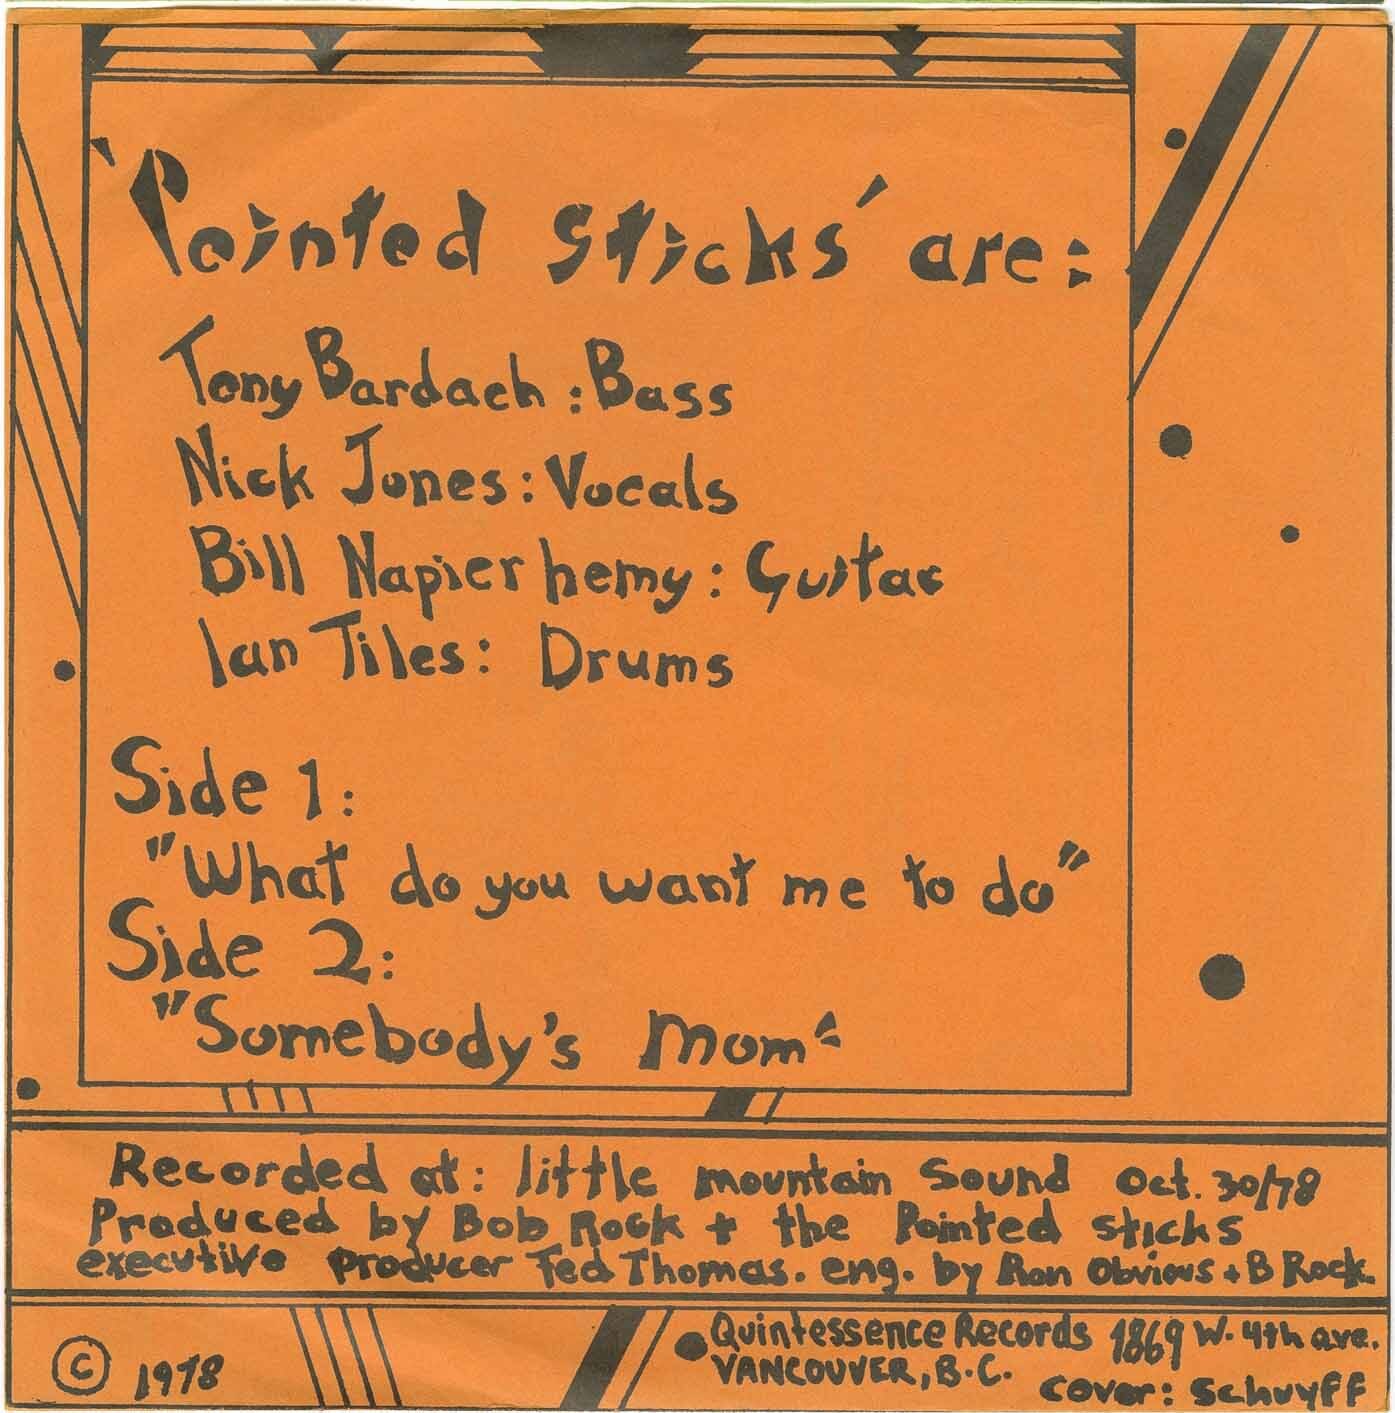 'Pointed Sticks' are:
Tony Bardach: Bass
Nick Jones: Vocals
Bill Napier hemy: Guitar
Ian Tiles: Drums
Side 1:
"What do you want me to do"
Side 2:
"Somebody's Mom"
Recorded at: little mountain Sound Oct. 30/78
Produced by Bob Rock + the Pointed sticks
executive producer Ted Thomas. eng. by Ron Obvious + B Rock.
© 1978
Quintessence Records 1869 W. 4th ave.
VANCOUVER, B.C.
cover: Schuyff